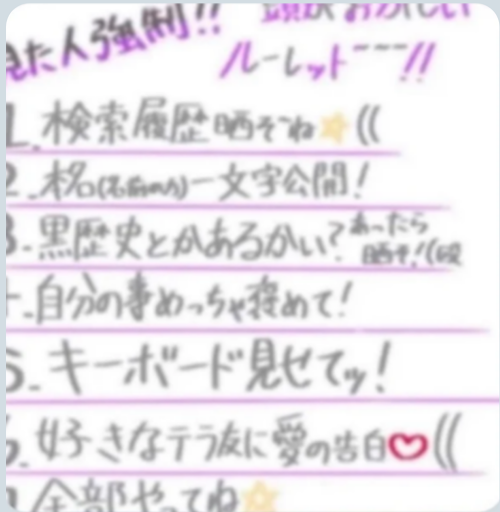 見た人強制!! 頭がおかしい
ルーレット~~~!!
1.検索履歴晒そね☆((
2.本名(名前のみ)一文字公開!
3.黒歴史とかあるかい?あったら
晒そ!(殴
4.自分の事めっちゃ褒めて!
5.キーボード見せてッ!
6.好きなテラ友に愛の告白♡((
7.全部やってね☆